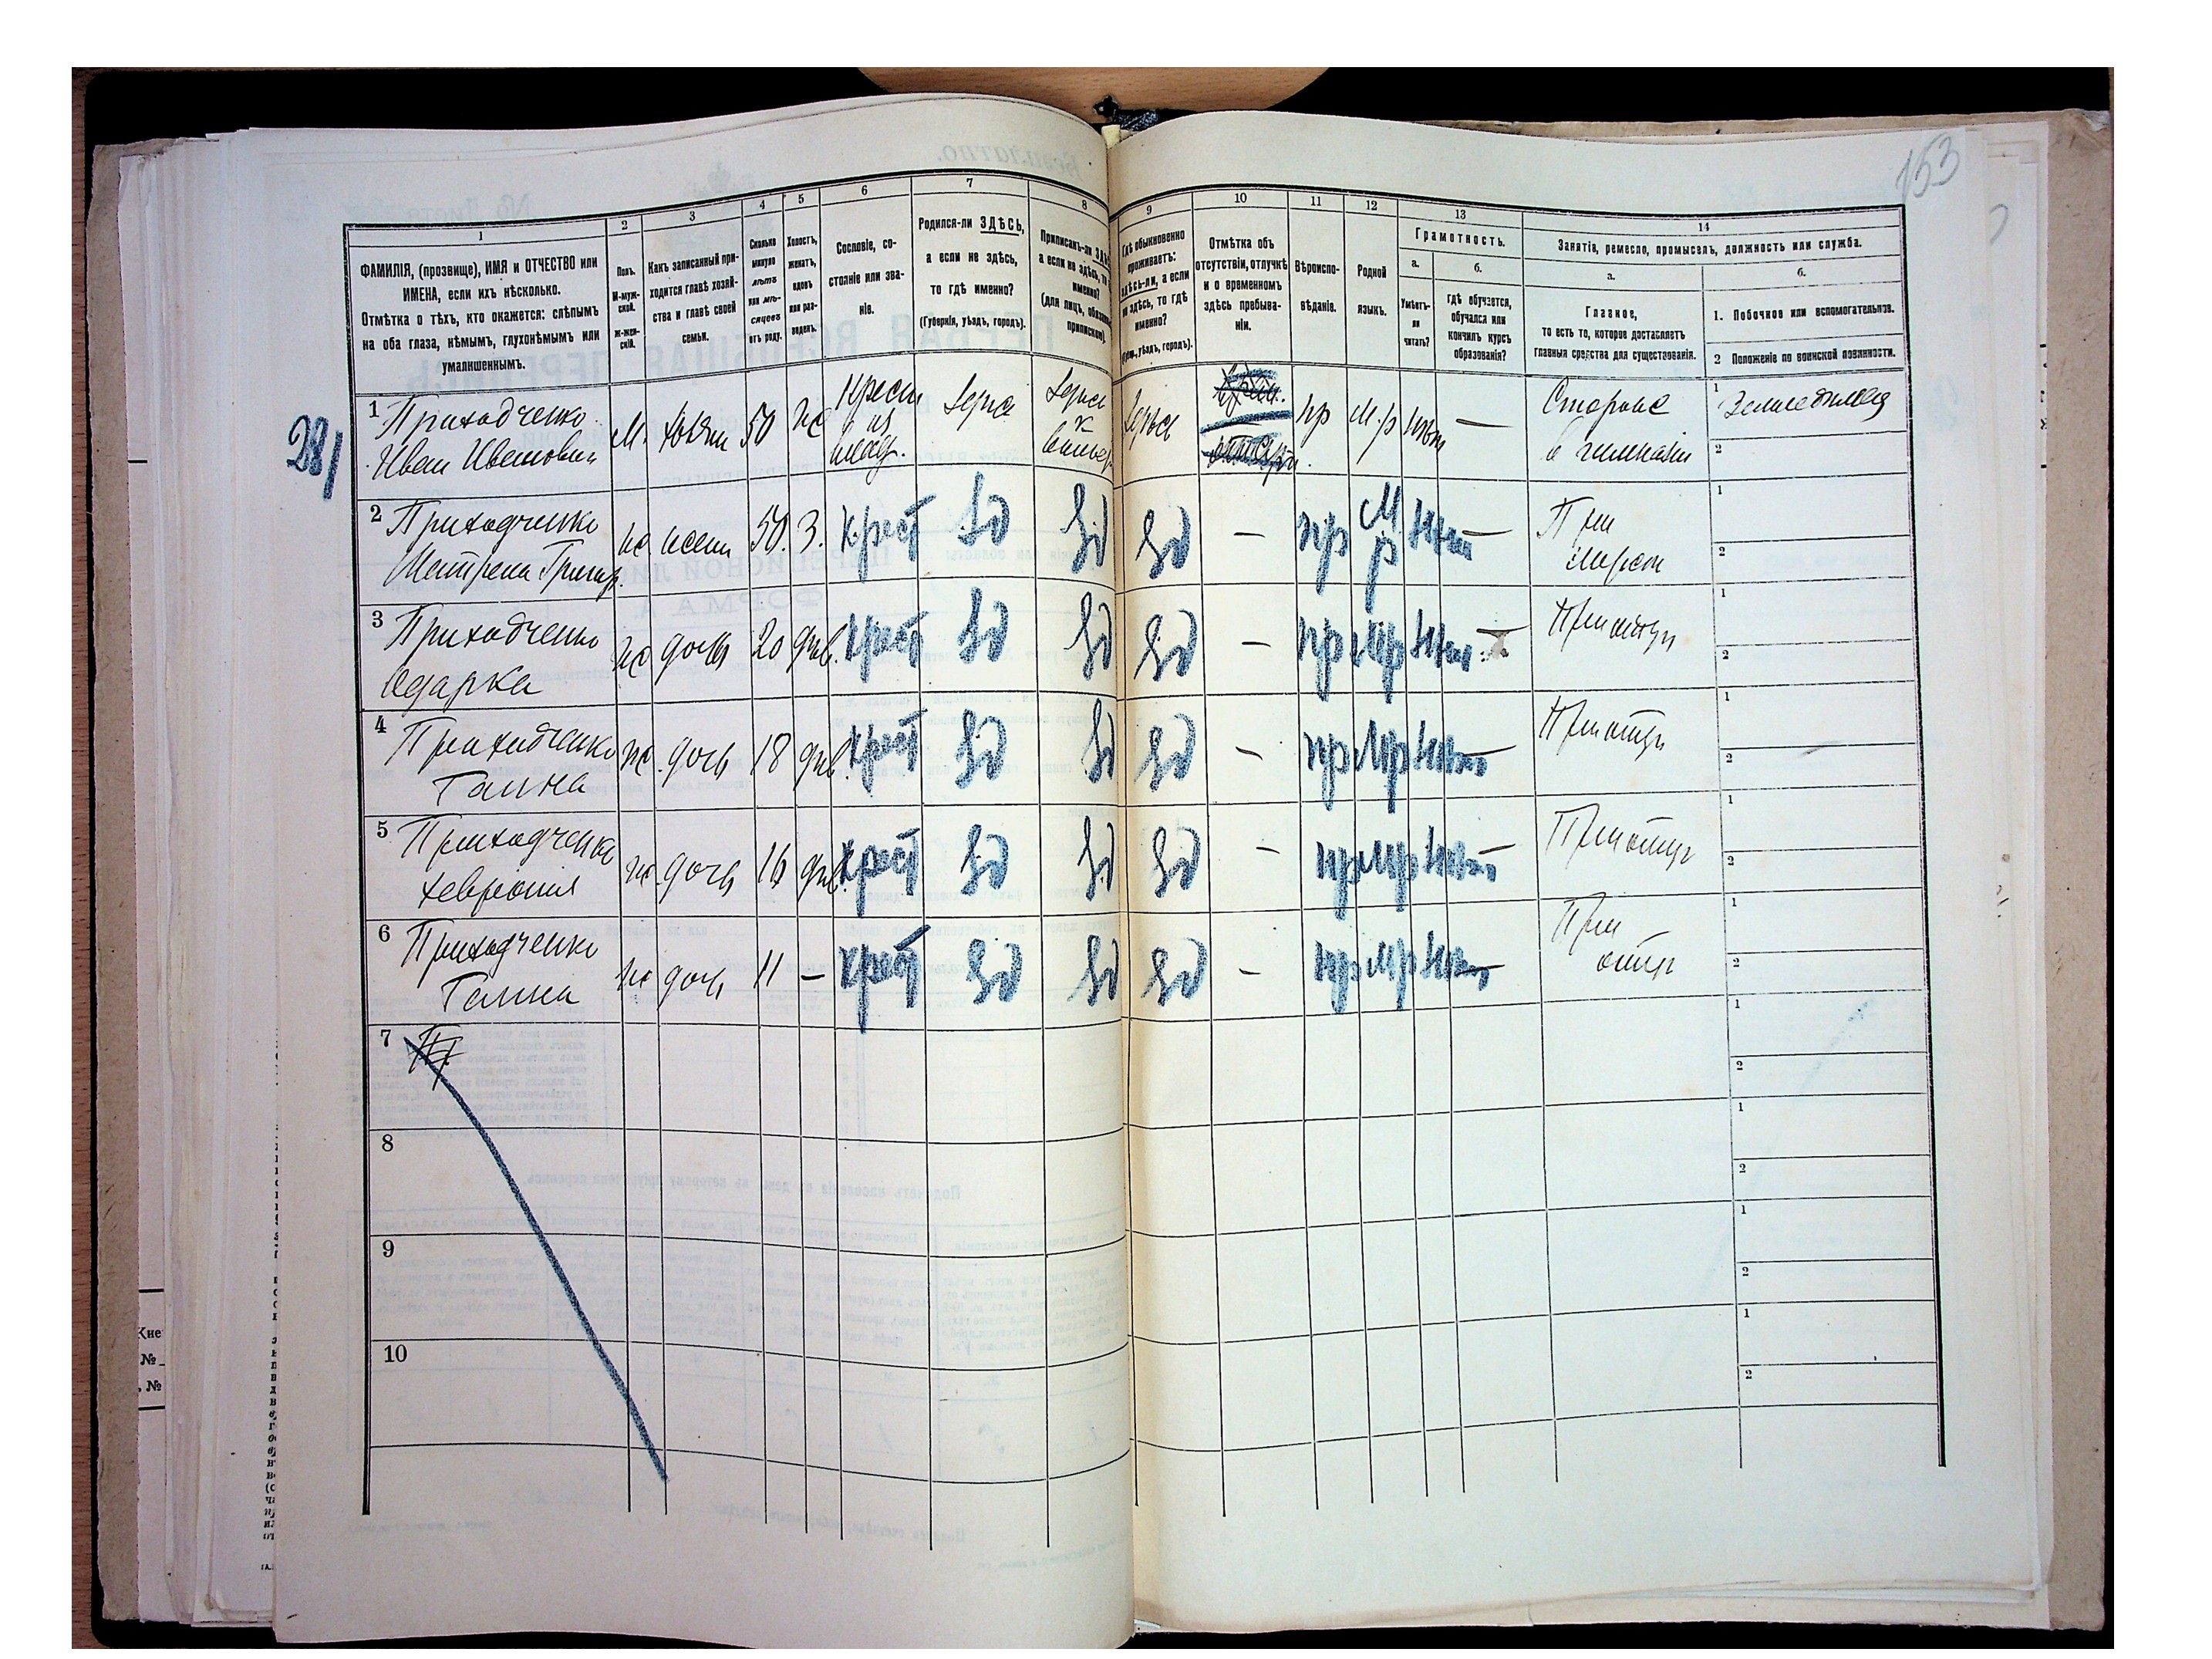 153
1
2
3
4
5
6
7
8
9
10
11
12
13
14
ФАМИЛІЯ, (прозвище), ИМЯ и ОТЧЕСТВО или
ИМЕНА, если ихъ нѣсколько.
Отмѣтка о тѣхъ, кто окажется: слѣпымъ
на оба глаза, нѣмымъ, глухонѣмымъ или
умалишеннымъ.
Полъ.
М-муж-
ской.
Ж-жен-
скій.
Какъ записанный при-
ходится главѣ хозяй-
ства и главѣ своей
семьи.
Сколько
минуло
лѣтъ
или мѣ-
сяцевъ
отъ роду.
Холостъ,
женатъ,
вдовъ
или раз-
веденъ.
Сословіе, со-
стояніе или зва-
ніе.
Родился-ли ЗДѢСЬ,
а если не здѣсь,
то гдѣ именно?
(Губернія, уѣздъ, городъ).
Приписанъ-ли
а если не здѣсь, то
именно?
(для лицъ,
Гдѣ обыкновенно
проживаетъ:
здѣсь-ли, а если
не здѣсь, то гдѣ
именно?
уѣздъ, городъ).
Отмѣтка объ
отсутствіи, отлучкѣ
и о временномъ
здѣсь пребыва-
ніи.
Вѣроиспо-
вѣданіе.
Родной
языкъ.
Грамотность.
а.
б.
Умѣетъ-
ли
читать?
гдѣ обучается,
обучался или
кончилъ курсъ
образованія?
Занятія, ремесло, промыселъ, должность или служба.
а.
б.
Главное,
то есть то, которое доставляетъ
главныя средства для существованія.
1. Побочное или вспомогательное.
2 Положеніе по воинской повинности.
281
1 Приходченко
Иван Иванович
М. хозяин 50 ж
Крест
из
влад.
Здесь
Здесь
к
Здесь
пр М.р нет —
Сторож
в гимназіи
1 Земледелец
2
2 Приходченко
Матрена Григор.
ж жена 50. З. Крест Зд Зд Зд — пр М р нет —
При
муже
1
2
3 Приходченко
Одарка
ж дочь 20 дев. Крест Зд Зд Зд — пр Мр нет —
При отце
1
2
4 Приходченко
Ганна
ж. дочь 18 дев. Крест Зд Зд Зд — пр Мр нет —
При отце
1
2
5 Приходченко
Хеврония
ж. дочь 16 дев. Крест Зд Зд Зд — пр Мр нет —
При отце
1
2
6 Приходченко
Ганна
ж дочь 11 — крест Зд Зд Зд — пр Мр нет —
При
отце
1
2
7
1
2
8
1
2
9
1
2
10
1
2
Кне
№
№